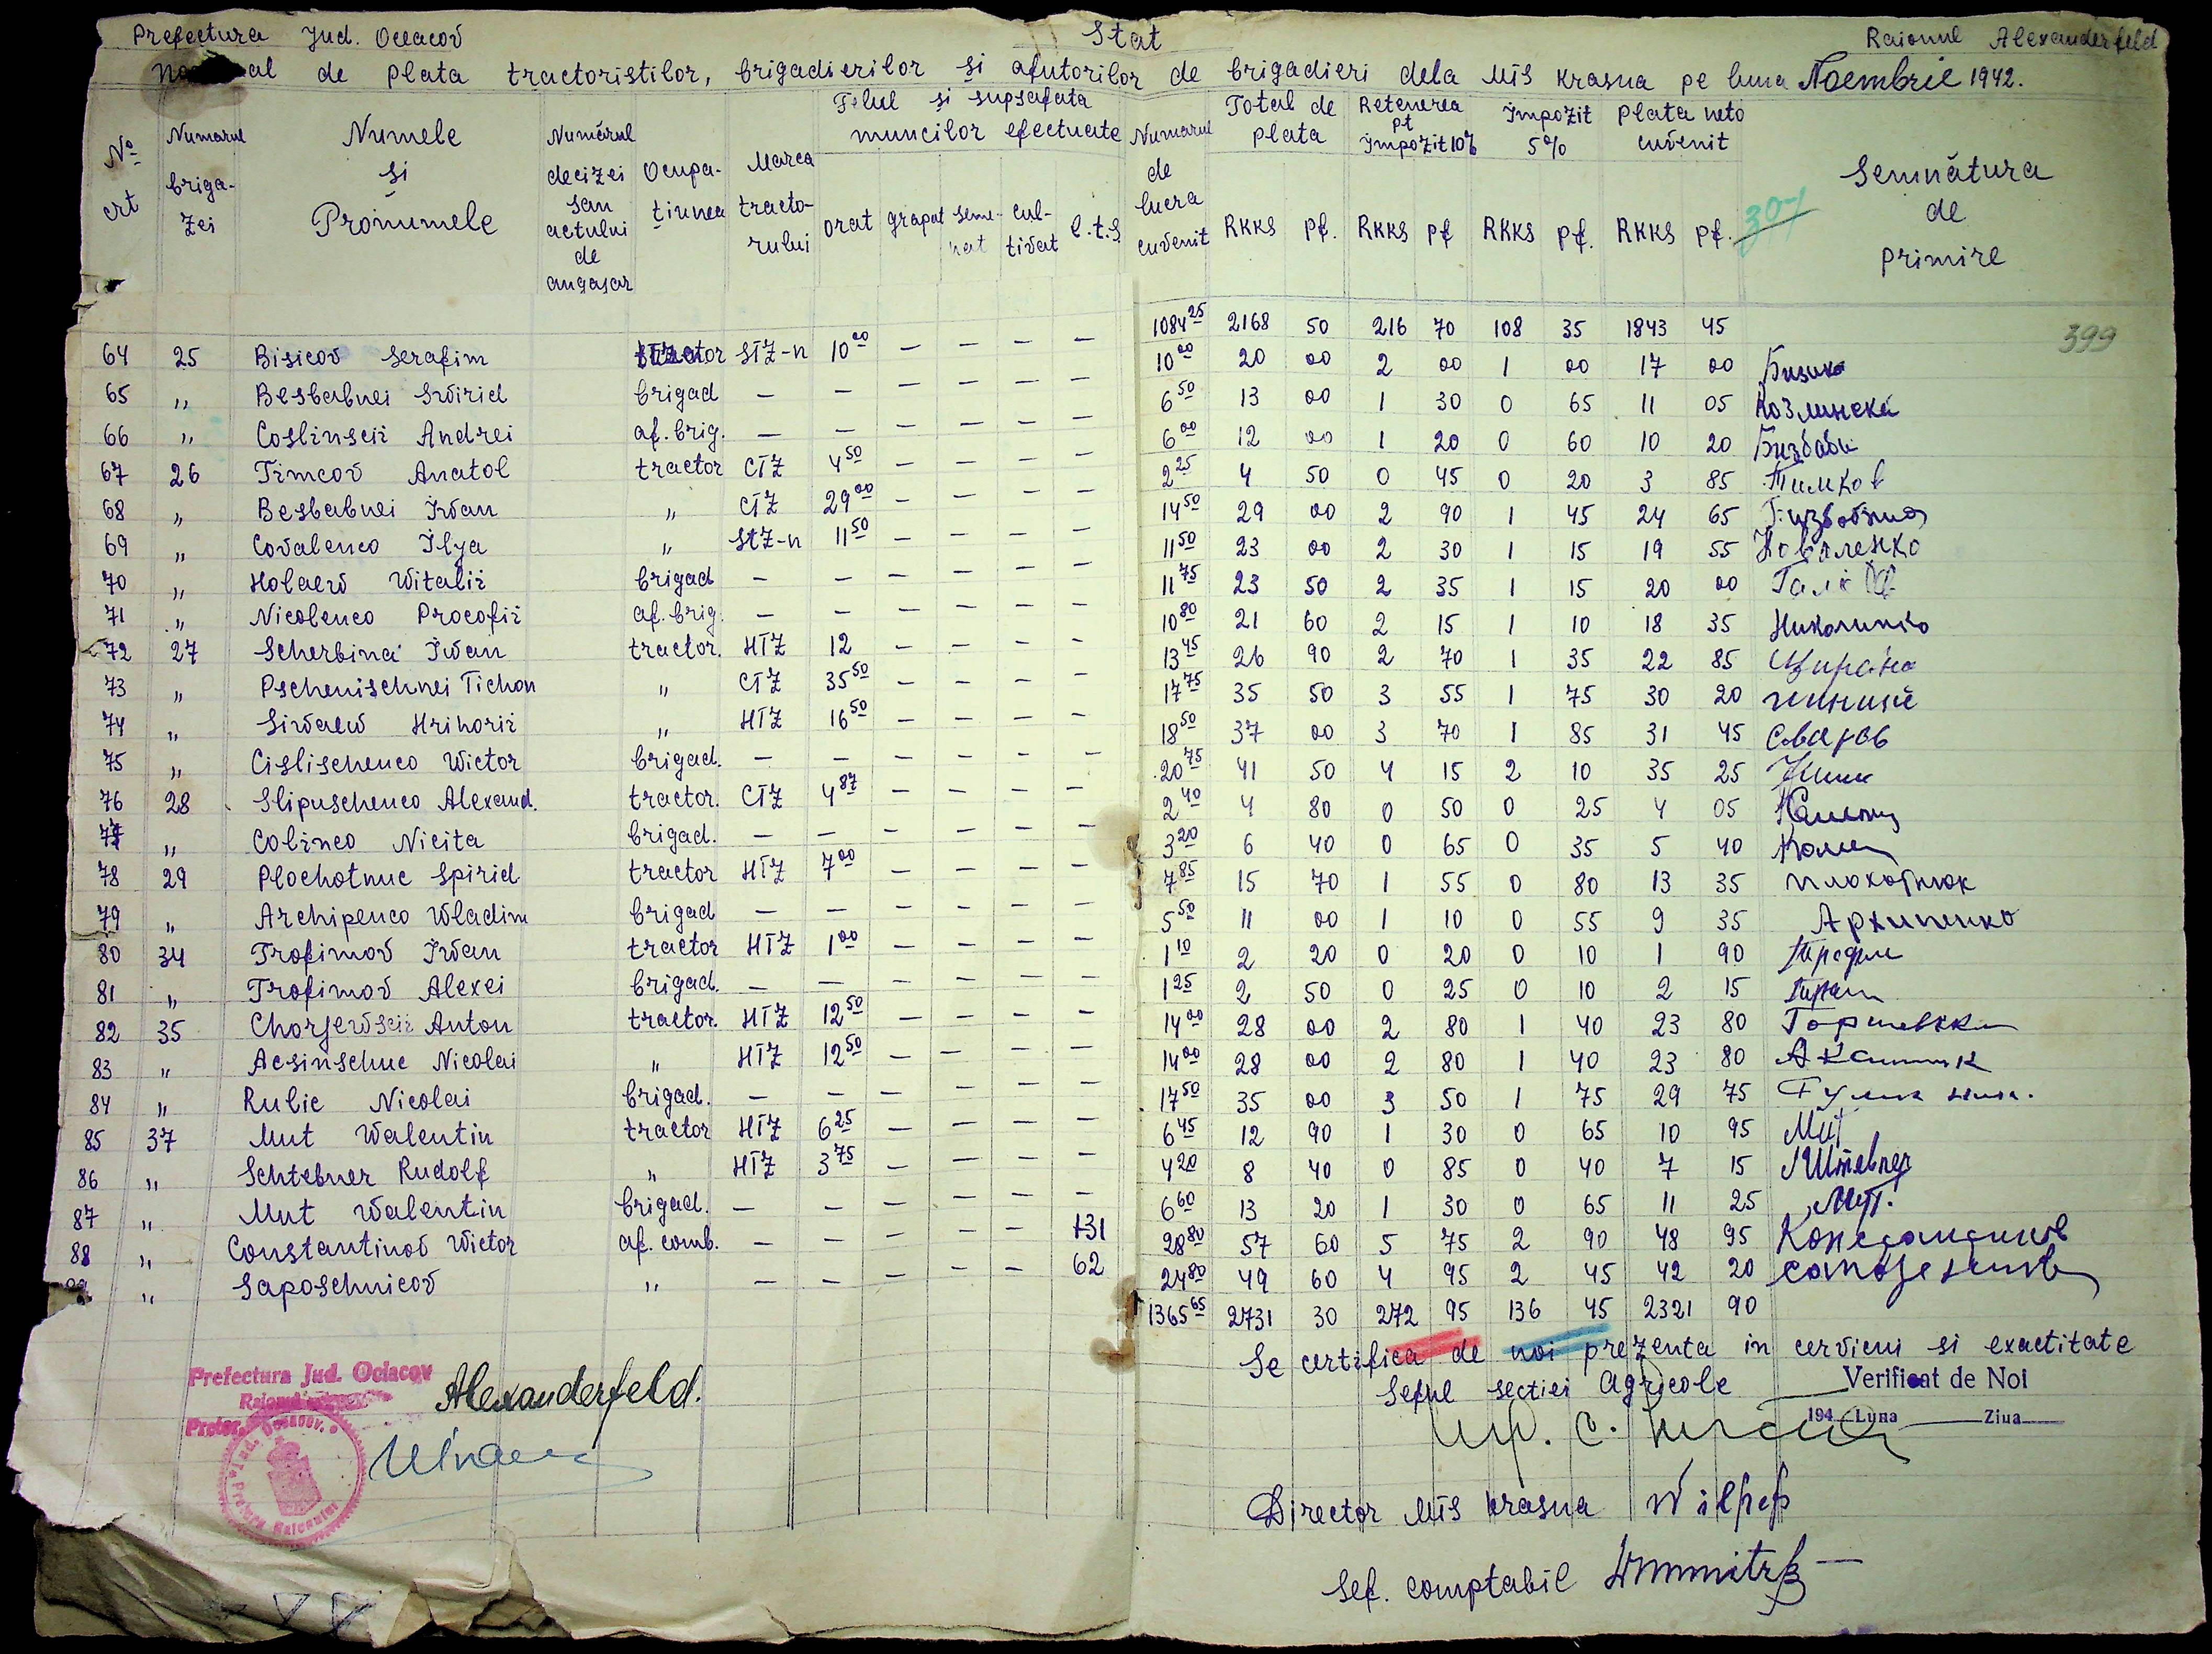 Prefectura Jud. Oceacov Stat Raionul Alexanderfeld
de plata tractoristilor, brigadierilor și ajutorilor de brigadieri dela MTS Krasna pe luna Noembrie 1942.
No crt Numarul brigazei Numele și Pronumele Numărul decizei sau actului de angajar Ocupațiunea Marca tractorului Felul si supsafata muncilor efectuate orat grapat semenat cultivat c.t.s. Numarul de lucra cuvenit Total de plata RKKS pf. Retenerea pt impozit 10% RKKS pf Impozit 5% RKKS pf. Plata neto cuvenit RKKS pf. Semnătura de primire
1084 25 2168 50 216 70 108 35 1843 45 399
64 25 Bisicov Serafim tractor STZ-n 10 00 — — — — 10 00 20 00 2 00 1 00 17 00
65 ,, Besbabnei Swirid brigad — — — — — — 6 50 13 00 1 30 0 65 11 05
66 ,, Coslinscii Andrei aj. brig. — — — — — — 6 00 12 00 1 20 0 60 10 20
67 26 Timcov Anatol tractor CTZ 4 50 — — — — 2 25 4 50 0 45 0 20 3 85 Тимков
68 ,, Besbabnei Iwan ,, CTZ 29 00 — — — — 14 50 29 00 2 90 1 45 24 65
69 ,, Covalenco Ilya ,, StZ-n 11 50 — — — — 11 50 23 00 2 30 1 15 19 55 Коваленко
70 ,, Holaew Witalii brigad — — — — — — 11 75 23 50 2 35 1 15 20 00
71 ,, Nicolenco Procofii aj. brig. — — — — — — 10 80 21 60 2 15 1 10 18 35
72 27 Scherbina Iwan tractor. HTZ 12 — — — — 13 45 26 90 2 70 1 35 22 85
73 ,, Pschenischnei Tichon ,, CTZ 35 50 — — — — 17 75 35 50 3 55 1 75 30 20
74 ,, Siwaew Hrihorii ,, HTZ 16 50 — — — — 18 50 37 00 3 70 1 85 31 45
75 ,, Cislischenco Wictor brigad. — — — — — — 20 75 41 50 4 15 2 10 35 25
76 28 Slipuschenco Alexand. tractor. CTZ 4 87 — — — — 2 40 4 80 0 50 0 25 4 05
77 ,, Colinco Nicita brigad. — — — — — — 3 20 6 40 0 65 0 35 5 40
78 29 Plochotnuc Spirid tractor HTZ 7 00 — — — — 7 85 15 70 1 55 0 80 13 35 Плохотнюк
79 ,, Archipenco Wladim brigad — — — — — — 5 50 11 00 1 10 0 55 9 35 Архипенко
80 34 Trofimov Iwan tractor HTZ 1 00 — — — — 1 10 2 20 0 20 0 10 1 90
81 ,, Trofimov Alexei brigad. — — — — — — 1 25 2 50 0 25 0 10 2 15
82 35 Chorjewscii Anton tractor. HTZ 12 50 — — — — 14 00 28 00 2 80 1 40 23 80
83 ,, Acsinschuc Nicolai ,, HTZ 12 50 — — — — 14 00 28 00 2 80 1 40 23 80
84 ,, Rulic Nicolai brigad. — — — — — — 17 50 35 00 3 50 1 75 29 75
85 37 Mut Walentin tractor HTZ 6 25 — — — — 6 45 12 90 1 30 0 65 10 95 Мут
86 ,, Schtebner Rudolf ,, HTZ 3 75 — — — — 4 20 8 40 0 85 0 40 7 15 Штебнер
87 ,, Mut Walentin brigad. — — — — — — 6 60 13 20 1 30 0 65 11 25 Мут.
88 ,, Constantinov Wictor aj. comb. — — — — — 131 28 80 57 60 5 75 2 90 48 95
,, Saposchnicov ,, — — — — — 62 24 80 49 60 4 95 2 45 42 20
1365 65 2731 30 272 95 136 45 2321 90
Se certifica de noi prezenta in cervicni si exactitate
Seful sectiei Agricole
Verificat de Noi
194 Luna Ziua
Prefectura Jud. Ociacov
Alexanderfeld.
Director MTS Krasna
Sef. comptabil